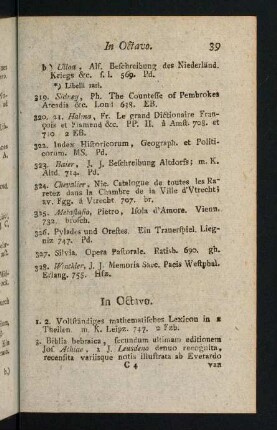 In Octavo. 39
b) Ulloa, Alf. Beschreibung des Niederländ.
Kriegs &c. f. l. 569. Pd.
*) Libelli rari.
319. Sidney, Ph. The Countesse of Pembrokes
Arcadia &c. Lond 638. EB.
320. 21. Halma, Fr. Le grand Dictionaire Fran-
çois et Flamend &c. PP. II. à Amst. 708. et
710 2 EB.
322. Index Historicorum, Geograph. et Politi-
corum. MS. Pd.
323. Baier, J. J. Beschreibung Altdorfs; m. K.
Altd. 714. Pd.
324. Chevalier, Nic. Catalogue de toutes les Ra-
retez dans la Chambre de la Ville d'Vtrecht;
av. Fgg. à Vtrecht 707. br.
325. Pietro, Isola d'Amore. Vienn.
732. brosch.
326. Pylades und Orestes. Ein Trauerspiel. Lieg-
niz 747. Pd.
327. Silvia. Opera Pastorale. Ratisb. 690. gh.
328. Winckler, J. J. Memoria Saec. Pacis Westphal.
Erlang. 755. Hfz.
In Octavo.
1. 2. Vollständiges mathematisches Lexicon in 2
Theilen. m. K. Leipz. 747. 2 Fzb.
3. Biblia hebraica, secundum ultimam editionem
Jos Athiae, a J. Leusdeno denuo recognita,
recensita variisque notis illustrata ab Everardo
C 4 van